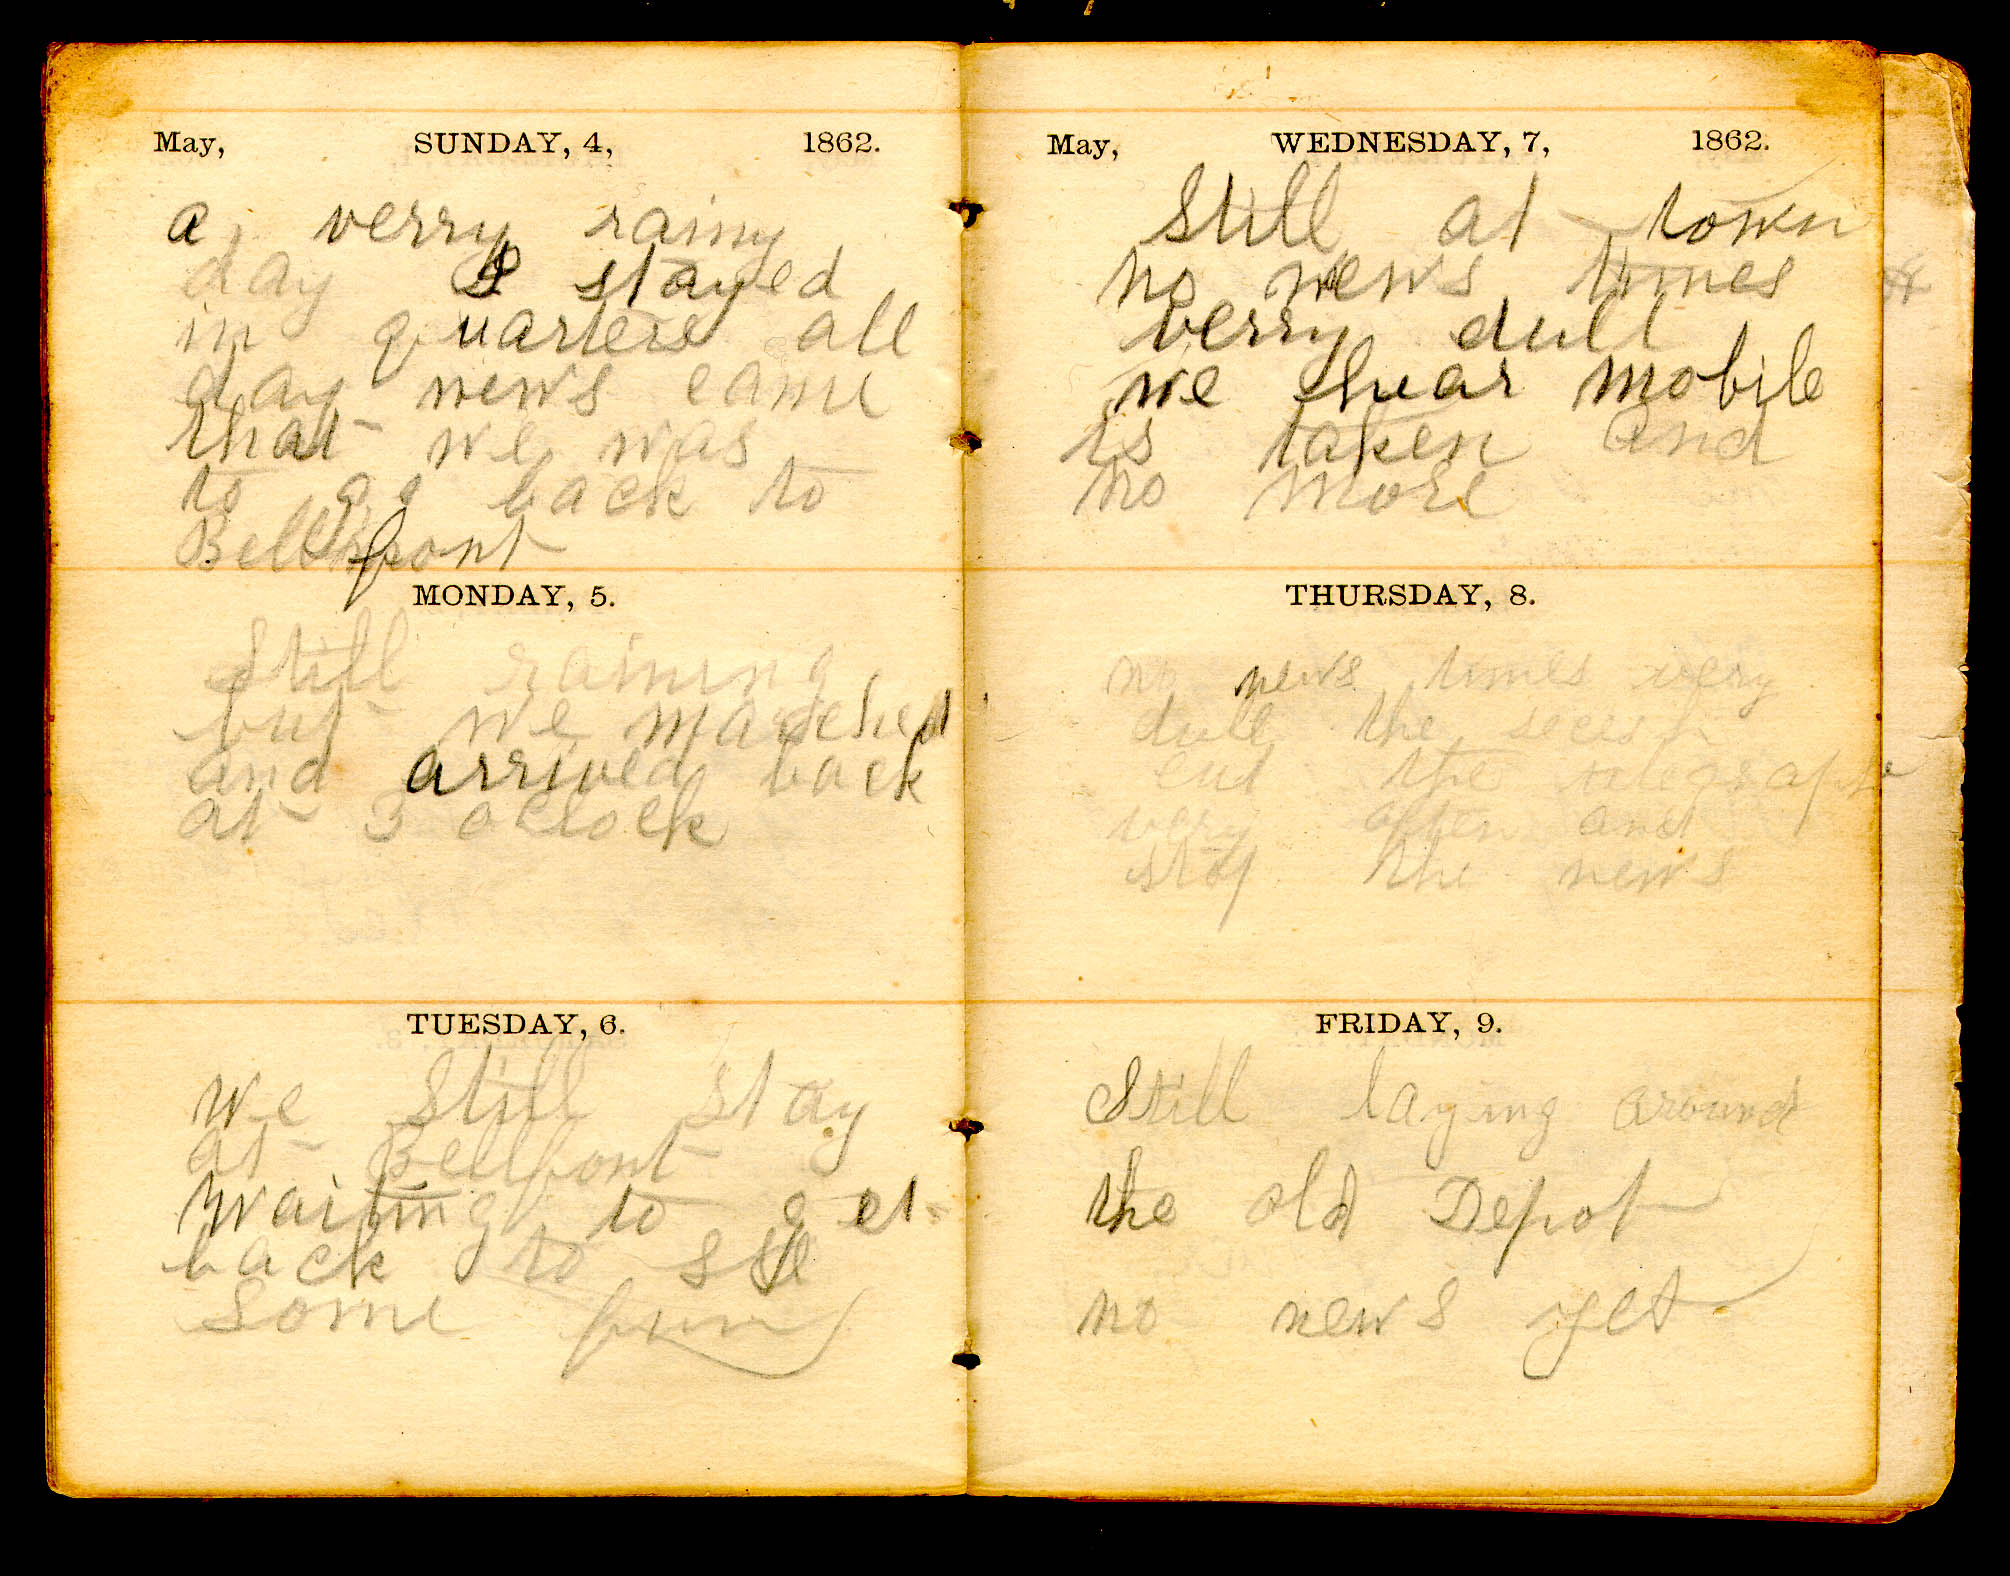 May, SUNDAY, 4, 1862.
a verry rainy
day I stayed
in quarters all
day news came
that we was
to go back to
Bellfont
MONDAY, 5.
Still raining
but we marched
and arrived back
at 3 oclock
TUESDAY, 6.
We Still stay
at Bellfont
waiting to get
back to see
some fun
May, WEDNESDAY, 7, 1862.
Still at town
no news times
verry dull
we hear mobile
is taken and
no more
THURSDAY, 8.
no news times very
dull the secesh
cut the telegraph
very often and
stop the news
FRIDAY, 9.
Still laying around
the old Depot
no news yet